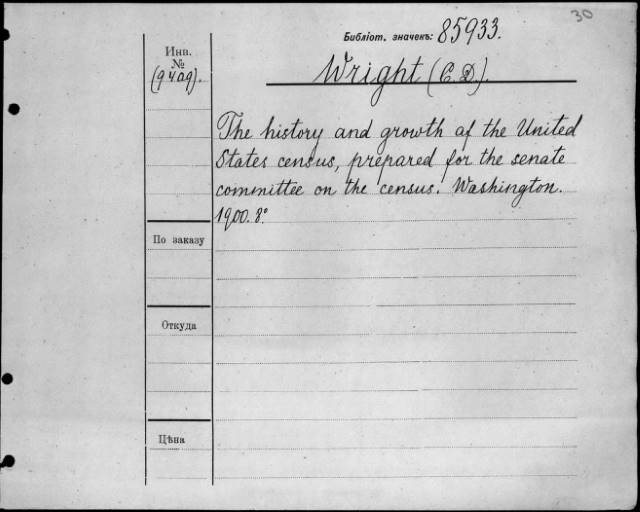 30
Библіот. значекъ: 85933.
Инв.
№
(9409).
Wright (C. D.).
The history and growth of the United
States census, prepared for the senate
committee on the census. Washington.
1900. 8°
По заказу
Откуда
Цѣна